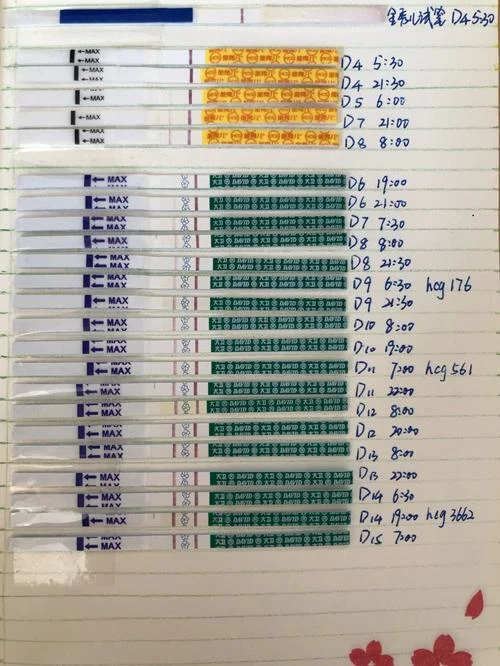 试管 D4 5:30
MAX D4 5:30
MAX D4 21:30
MAX D5 6:00
MAX D7 21:00
MAX D8 8:00
MAX 大卫 DAVID D6 19:00
MAX 大卫 DAVID D6 21:00
MAX 大卫 DAVID D7 7:30
MAX 大卫 DAVID D8 8:00
MAX 大卫 DAVID D8 21:30
MAX 大卫 DAVID D9 6:30 hcg 176
MAX 大卫 DAVID D9 21:30
MAX 大卫 DAVID D10 8:00
MAX 大卫 DAVID D10 19:00
MAX 大卫 DAVID D11 7:00 hcg 561
MAX 大卫 DAVID D11 22:00
MAX 大卫 DAVID D12 8:00
MAX 大卫 DAVID D12 20:00
MAX 大卫 DAVID D13 8:00
MAX 大卫 DAVID D13 22:00
MAX 大卫 DAVID D14 6:30
MAX 大卫 DAVID D14 19:00 hcg 3662
MAX 大卫 DAVID D15 7:00